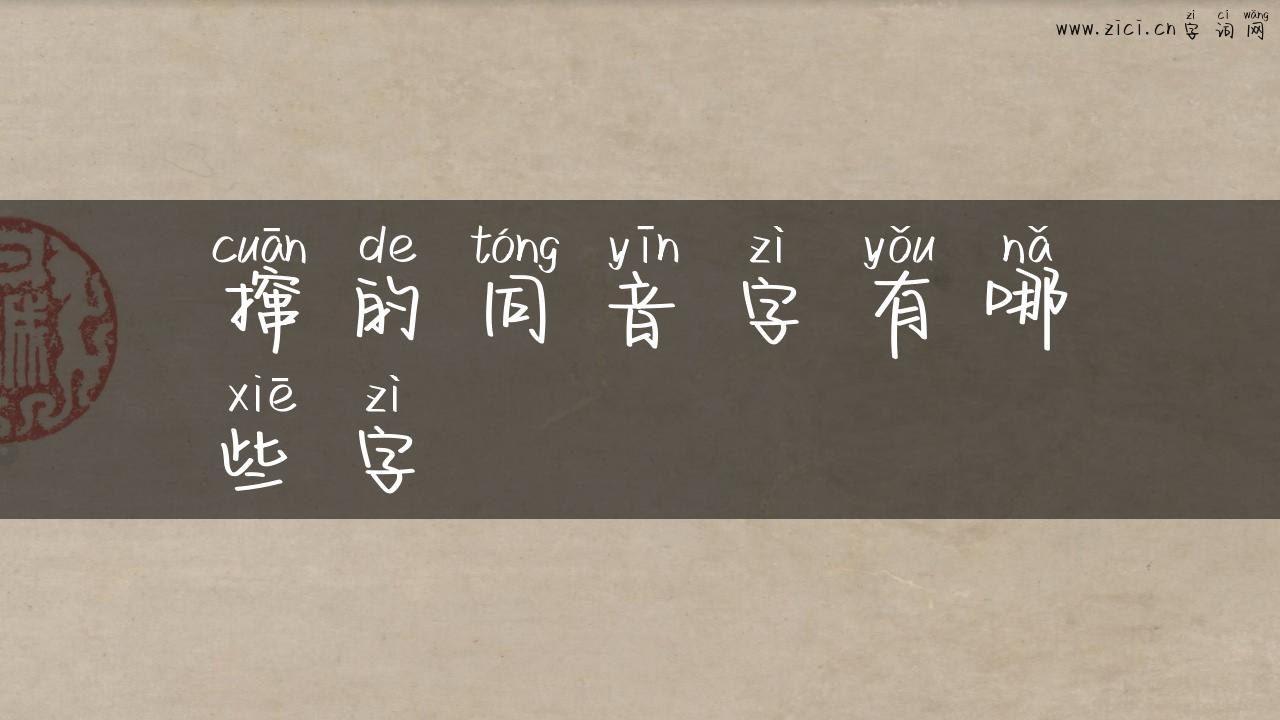 zì cí wǎng
www.zici.cn字词网
cuān de tóng yīn zì yǒu nǎ
撺的同音字有哪
xiē zì
些字